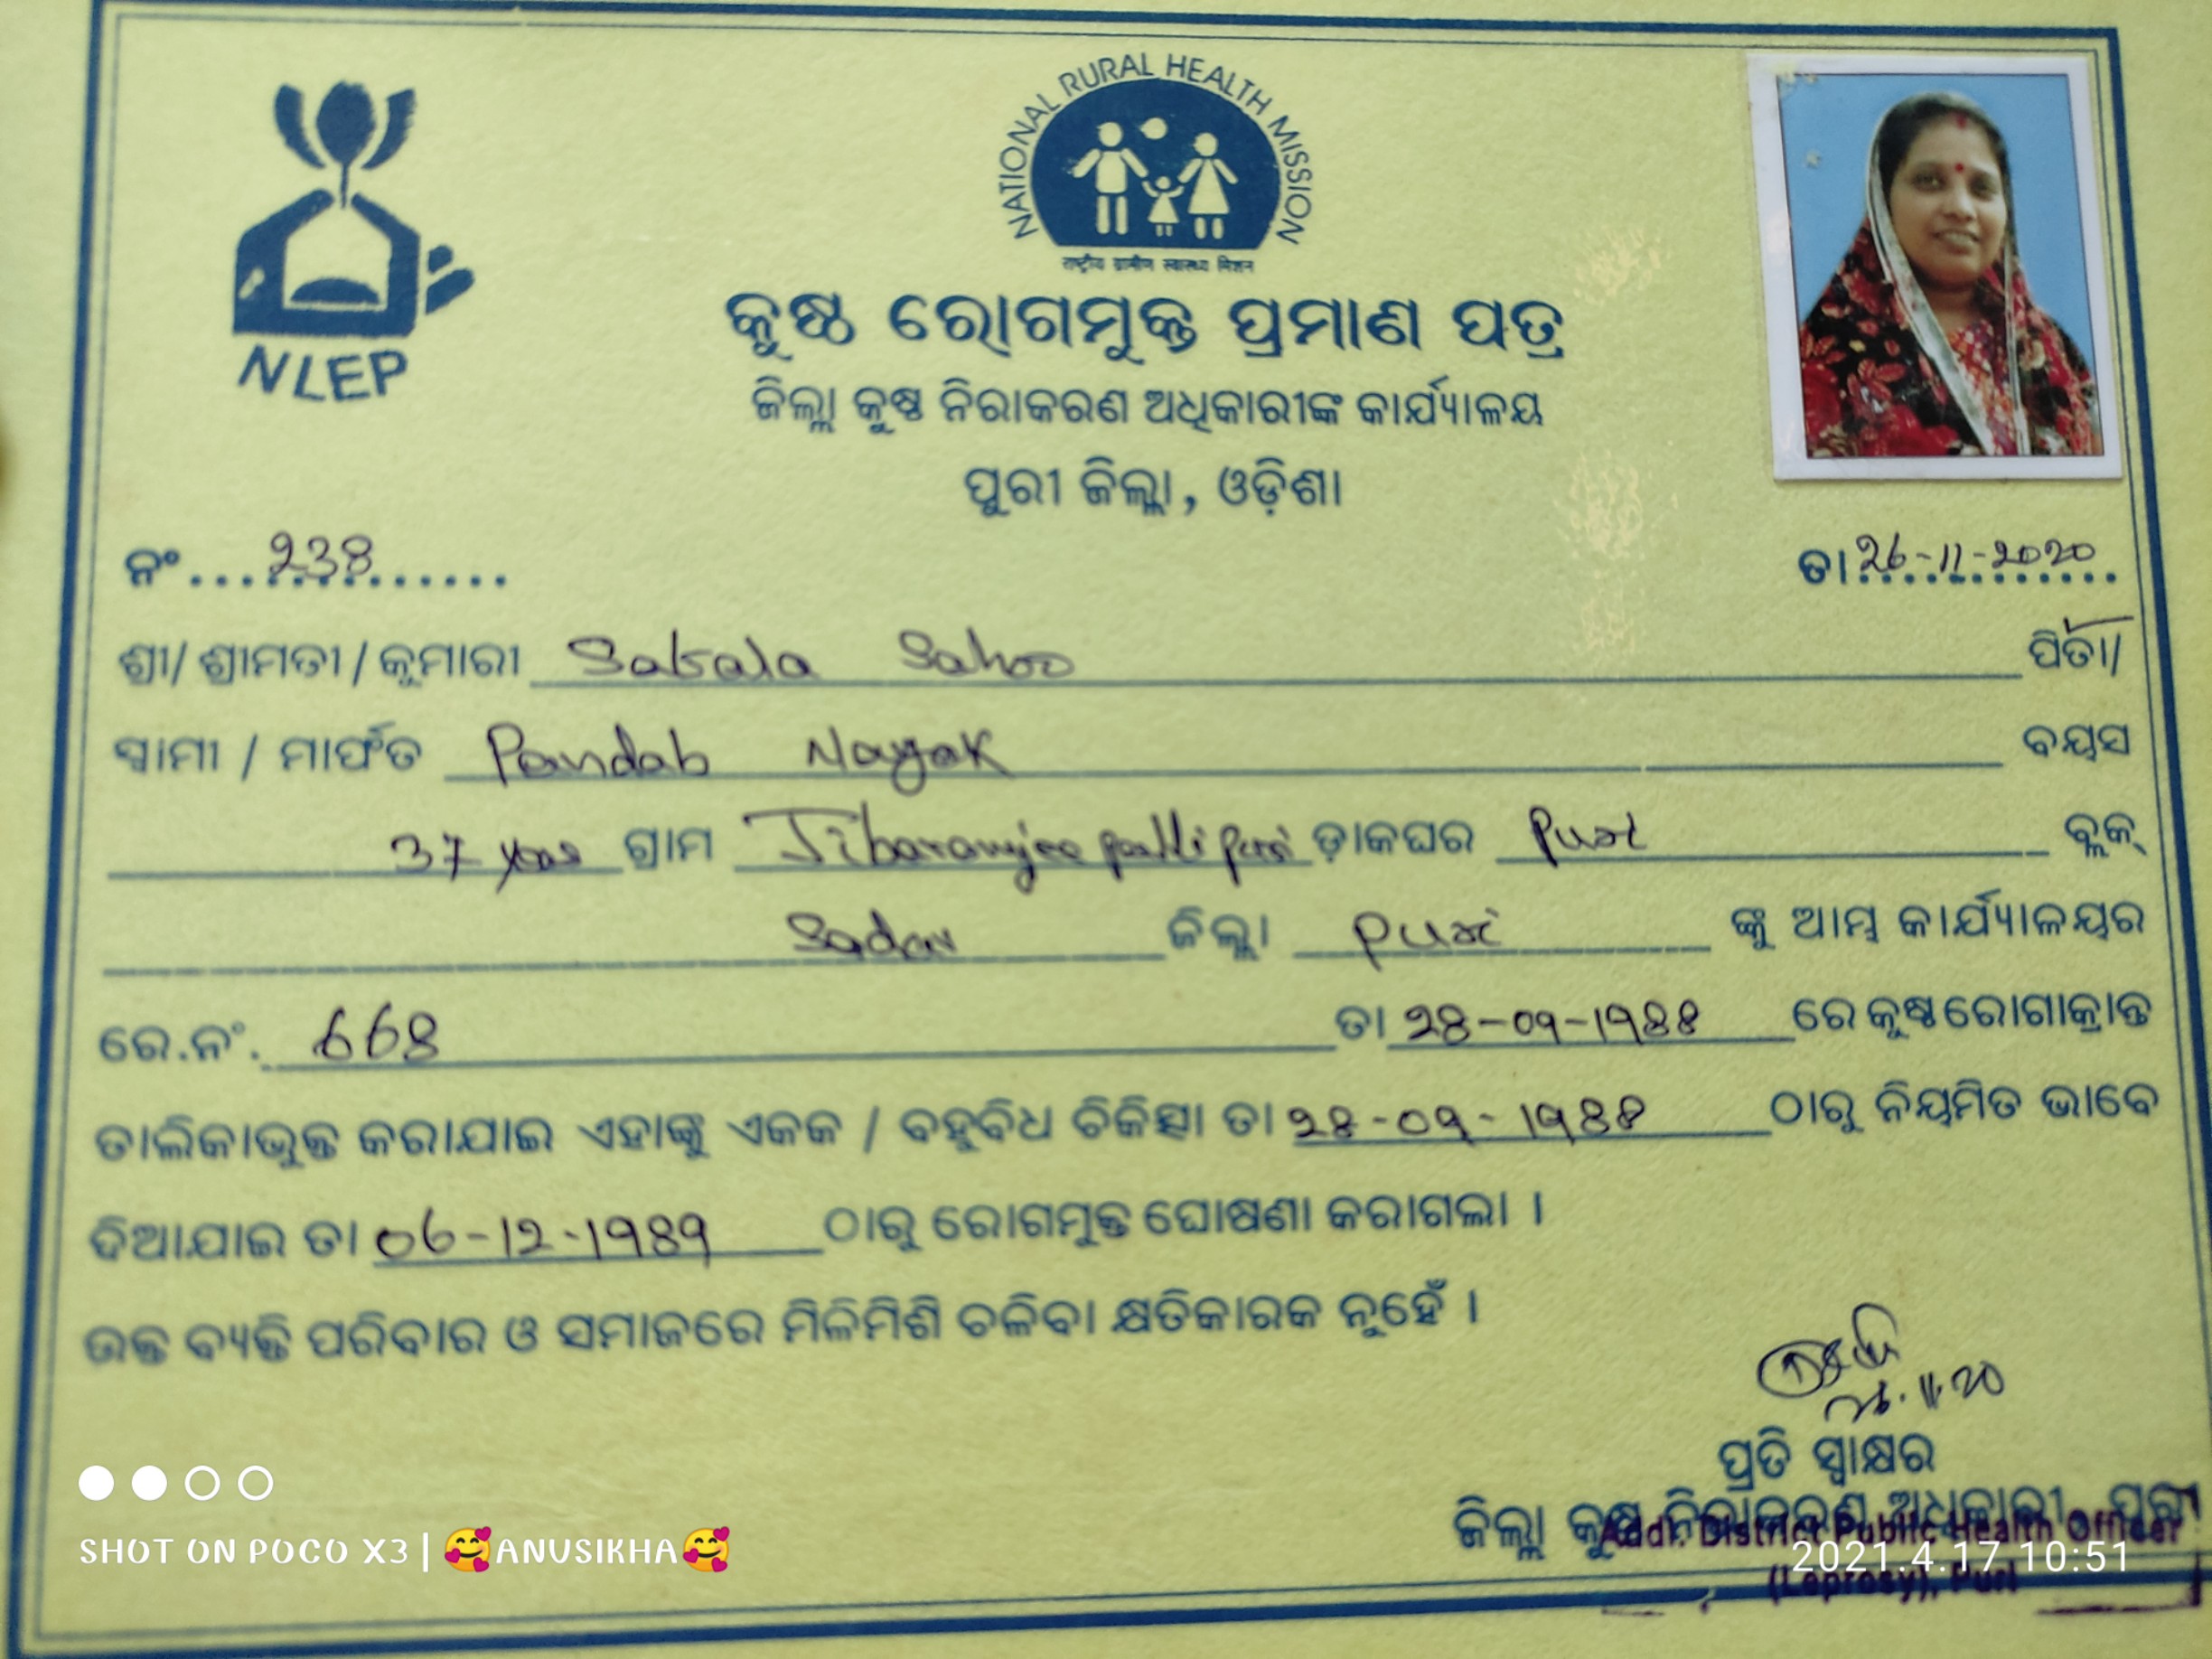 NATIONAL RURAL HEALTH MISSION
राष्ट्रीय ग्रामीण स्वास्थ्य मिशन
NLEP
କୁଷ୍ଠ ରୋଗମୁକ୍ତ ପ୍ରମାଣ ପତ୍ର
ଜିଲ୍ଲା କୁଷ୍ଠ ନିରାକରଣ ଅଧିକାରୀଙ୍କ କାର୍ଯ୍ୟାଳୟ
ପୁରୀ ଜିଲ୍ଲା, ଓଡ଼ିଶା
ନଂ............. ତା 26-11-2020
ଶ୍ରୀ/ ଶ୍ରୀମତୀ / କୁମାରୀ Sahoo ପିତା/
ସ୍ୱାମୀ / ମାର୍ଫତ Pandab Nayak ବୟସ
37 years ଗ୍ରାମ ଡ଼ାକଘର Puri ବ୍ଲକ୍
Sadar ଜିଲ୍ଲା Puri ଙ୍କୁ ଆମ୍ଭ କାର୍ଯ୍ୟାଳୟର
ରେ.ନଂ. ତା ରେ କୁଷ୍ଠ ରୋଗାକ୍ରାନ୍ତ
ତାଲିକାଭୁକ୍ତ କରାଯାଇ ଏହାଙ୍କୁ ଏକକ / ବହୁବିଧ ଚିକିତ୍ସା ତା ଠାରୁ ନିୟମିତ ଭାବେ
ଦିଆଯାଇ ତା 06-12-1989 ଠାରୁ ରୋଗମୁକ୍ତ ଘୋଷଣା କରାଗଲା ।
ଉକ୍ତ ବ୍ୟକ୍ତି ପରିବାର ଓ ସମାଜରେ ମିଳିମିଶି ଚଳିବା କ୍ଷତିକାରକ ନୁହେଁ ।
ପ୍ରତି ସ୍ୱାକ୍ଷର
ଜିଲ୍ଲା କୁଷ୍ଠ ନିରାକରଣ ଅଧିକାରୀ, ପୁରୀ
Addl. District Public Health Officer
(Leprosy), Puri
SHOT ON POCO X3 | 🥰ANUSIKHA🥰
2021.4.17 10:51